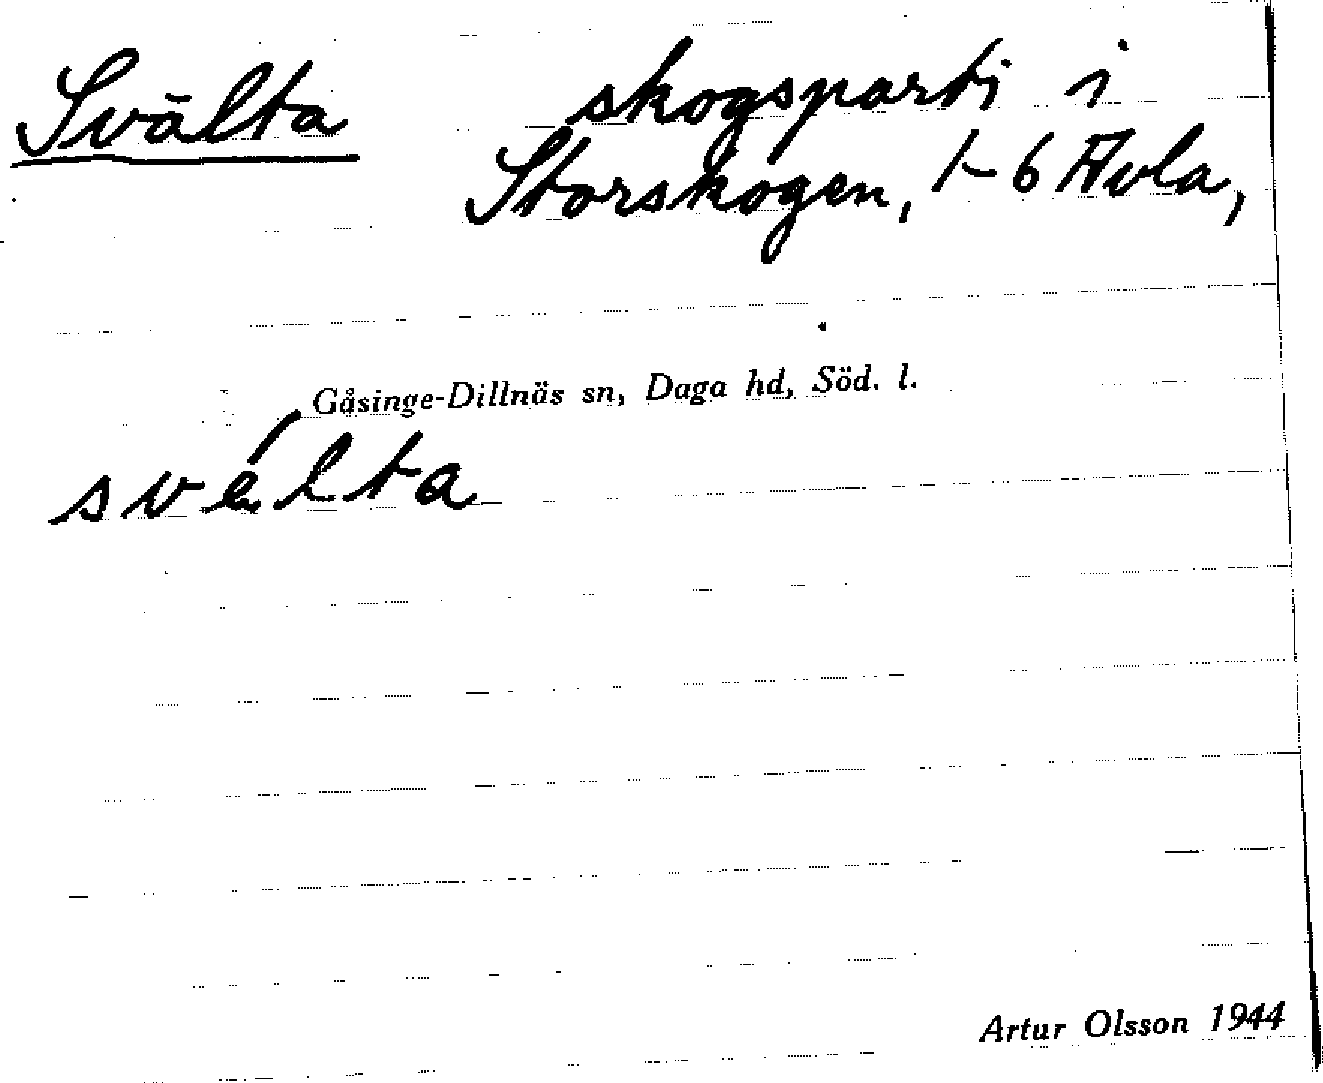 Svälta skogsparti i
Storskogen, 1-6 Avla,
Gåsinge-Dillnäs sn, Daga hd, Söd. l.
svélta
Artur Olsson 1944